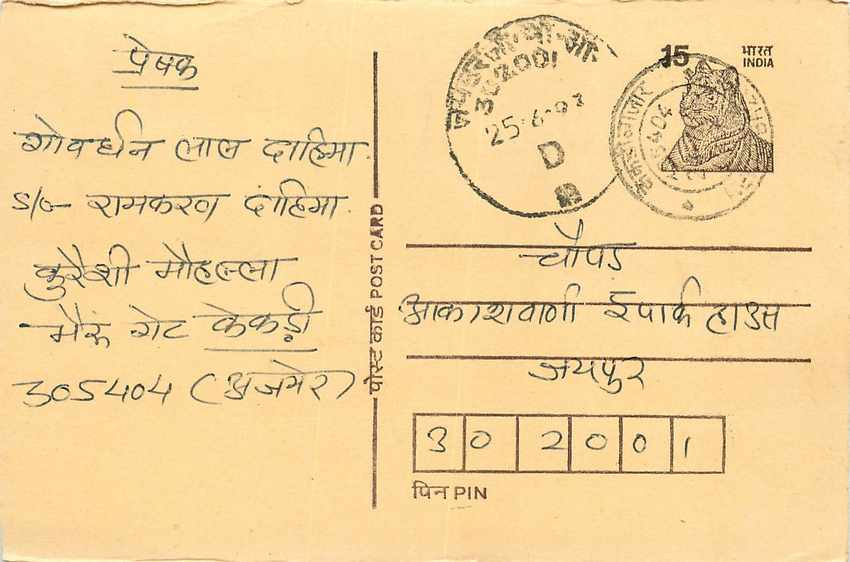 प्रेषक
गोवर्धन लाल दाहिमा
S/o रामकरण दाहिमा
कुरैशी मौहल्ला
भैरू गेट केकड़ी
305404 (अजमेर)
पोस्ट कार्ड POST CARD
जयपुर जी.पी.ओ.
302001
25-6-93
D
15
भारत
INDIA
305404
चौपड
आकाशवाणी ईपार्क हाउस
जयपुर
302001
पिन PIN